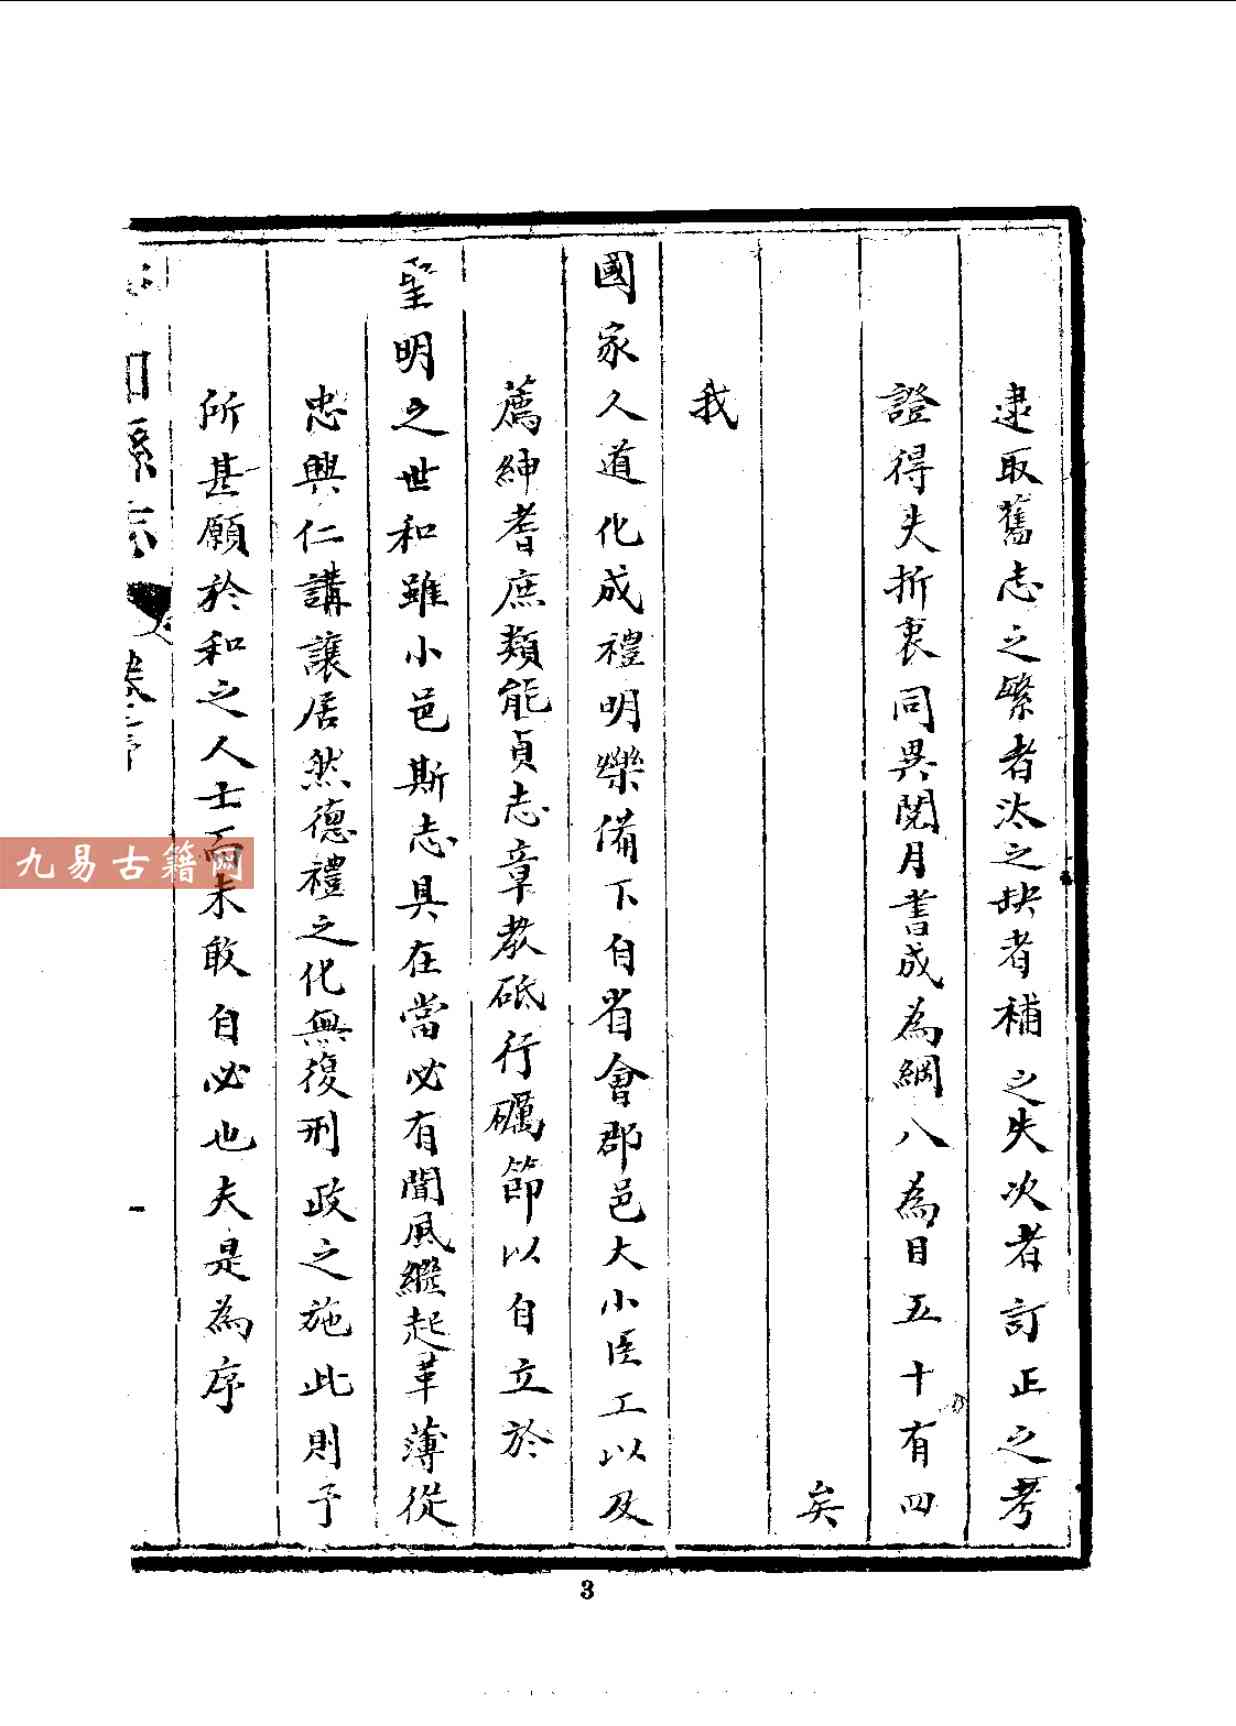 逮取舊志之繁者汰之缺者補之失次者訂正之考
證得失折衷同異閱月書成為綱八為目五十有四
矣
我
國家久道化成禮明樂備下自省會郡邑大小臣工以及
薦紳耆庶類能貞志章教砥行礪節以自立於
聖明之世和雖小邑斯志具在當必有聞風繼起革薄從
忠興仁講讓居然德禮之化無復刑政之施此則予
所甚願於和之人士而未敢自必也夫是為序
和縣志
九易古籍网
3